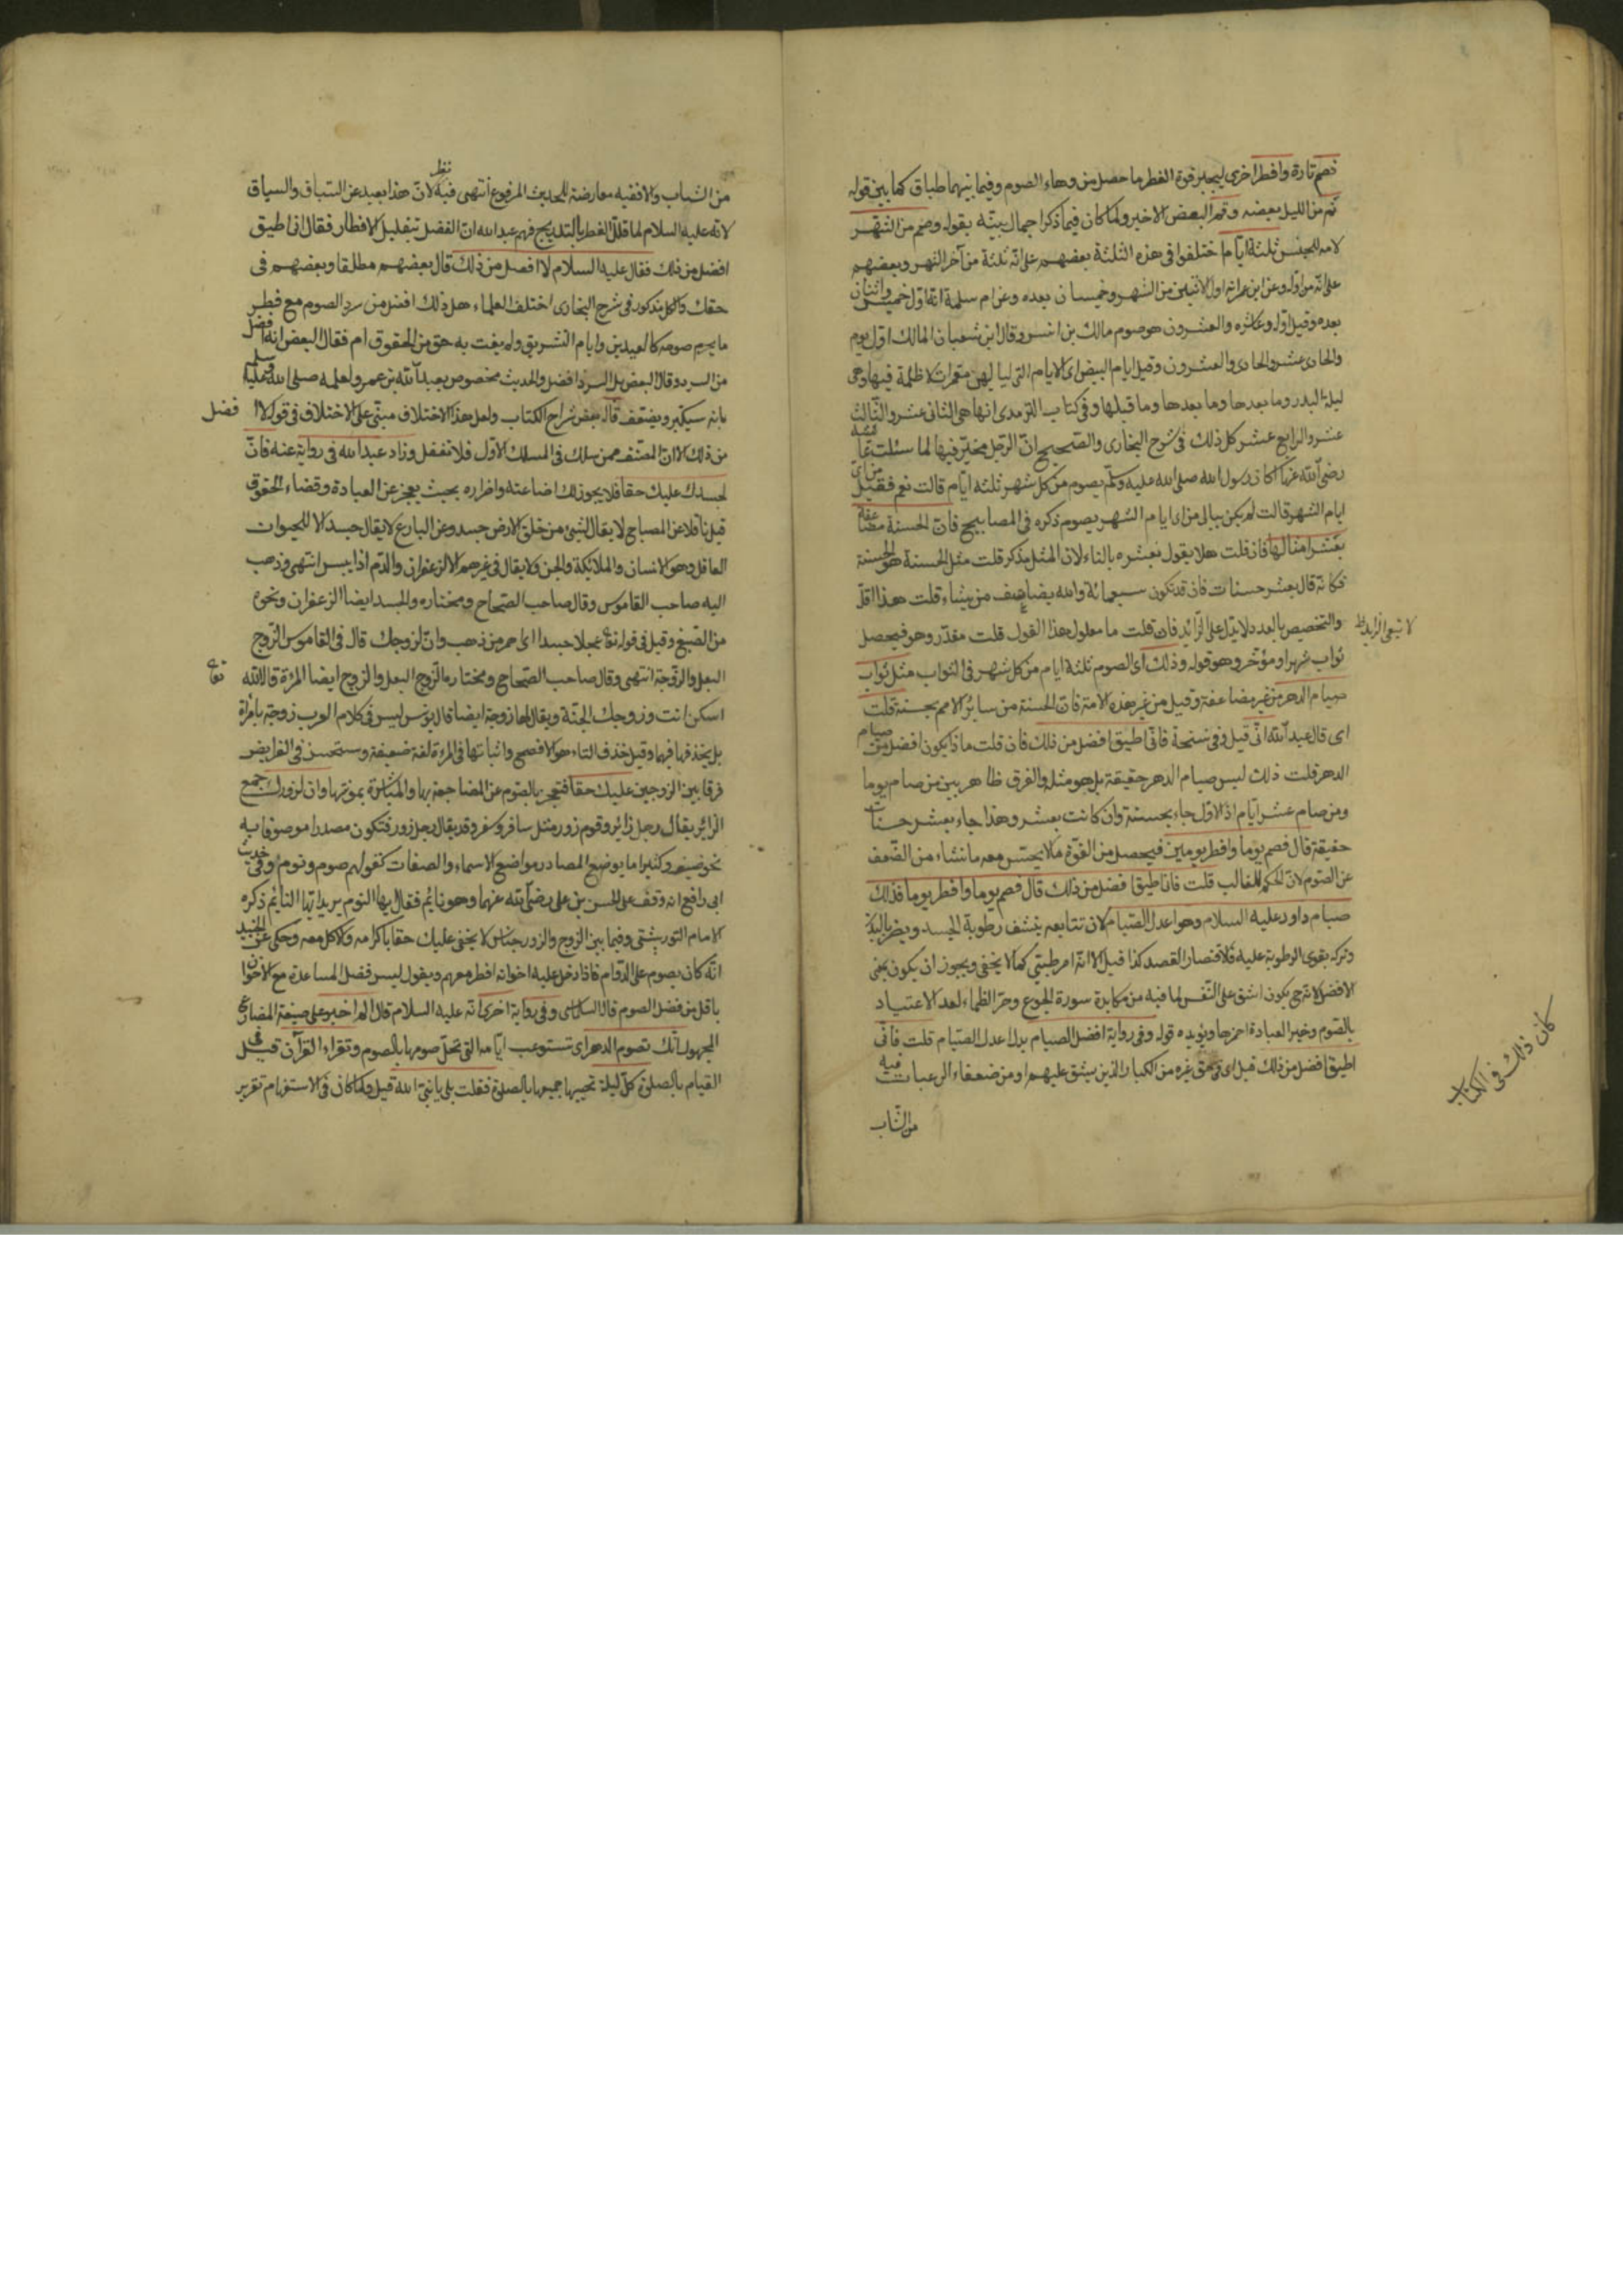 فصم تارة وافطر اخرى ليجبر قوة الفطر ما حصل من وهاء الصوم وفيما بينهما طباق كما بين قوله
نم من الليل بعضه وقم البعض الاخير ولما كان فيما ذكر اجمال بينه بقوله وصم من الشهر
لامه للجنس ثلثة ايام اختلفوا فى هذه الثلثة بعضهم على انه ثلثة من آخر الشهر وبعضهم
على انه من اوله وعن ابن عمر انه اول الاثنين من الشهر وخميسان بعده وعن ام سلمة انه اول خميس واثنان
بعده وقيل اوله وعاشره والعشرون هو صوم مالك بن انس وقال ابن شعبان المالك اول يوم
والحادى عشر والحادى والعشرون وقيل ايام البيض اى الايام التى لياليهن مقمرات لا ظلمة فيها وهى
ليلة البدر وما بعدها وما قبلها وفى كتاب الترمدى انها هى الثانى عشر والثالث
عشر والرابع عشر كل ذلك فى شرح البخارى والصحيح ان الرجل مخير فيها لما سئلت عائشة
رضى الله عنها اكان رسول الله صلى الله عليه وسلم يصوم من كل شهر ثلثة ايام قالت نعم فقيل من اى
ايام الشهر قالت لم يكن يبالى من اى ايام الشهر يصوم ذكره فى المصابيح فان الحسنة مضاعفة
بعشر امثالها فان قلت هلا يقول بعشره بالتاء لان المثل مذكر قلت مثل الحسنة هو الحسنة
فكانه قال بعشر حسنات فان قد تكون سبعمائة والله يضاعف من يشاء قلت هذا اقل
والتخصيص بالعدد لا يدل على الزائد فان قلت ما معلول هذا القول قلت مقدر وهو فيحصل
لا ينفى الزايد
ثواب شهر او مؤخر وهو قوله وذلك اى الصوم ثلثة ايام من كل شهر فى الثواب مثل ثواب
صيام الدهر من غير مضاعفة وقيل من غير هذه الامة فان الحسنة من سائر الامم بحسنة قلت
اى قال عبد الله انى قيل وفى نسخة فانى اطيق افضل من ذلك فان قلت ماذا يكون افضل من صيام
الدهر قلت ذلك ليس صيام الدهر حقيقة بل هو مثله والفرق ظاهر بين من صام يوما
ومن صام عشر ايام اذ الاول جاء بحسنة وان كانت بعشر وهذا جاء بعشر حسنات
حقيقة قال فصم يوما وافطر يومين فيحصل من القوة ما نشاء من الضعف
عن الصوم لان الحكم للغالب قلت فانا اطيق افضل من ذلك قال فصم يوما وافطر يوما فذلك
صيام داود عليه السلام وهو اعدل الصيام لان تتابعه ينشف رطوبة الجسد ويضر بالبدن
وتركه يقوى الرطوبة عليه فلاقتصار القصد كذا قيل الا انه امر طبتى كما لا يخفى ويجوز ان يكون بمعنى
الافضل لانه ح يكون اشق على النفس لما فيه من مكابدة سورة الجوع وحر الظماء لعد الاعتياد
بالصوم وخير العبادة احمزها ويؤيده قوله وفى رواية افضل الصيام بدل اعدل الصيام قلت فانى
اطيق افضل من ذلك قيل اى فى حق غيره من الكبار الذين يشق عليهم او من ضعفاء الرعبات فيه
كان ذلك فى الكتاب
من الشاب
من الشباب والافقيه معارضة للحديث المرفوع انتهى فيه نظر لان هذا بعيد عن السباق والسياق
لانه عليه السلام لما قلل الفطر بالتدريج فهم عبد الله ان الفضل بتقليل الافطار فقال انى اطيق
افضل من ذلك فقال عليه السلام لا افضل من ذلك قال بعضهم مطلقا وبعضهم فى
حقك والكل مذكور فى شرح البخارى اختلف العلماء هل ذلك افضل من سرد الصوم مع فطر
ما يحرم صومه كالعيدين وايام التشريق ولم يفت به حق من الحقوق ام فقال البعض انه افضل
من السرد وقال البعض بل السرد افضل والحديث مخصوص بعبد الله بن عمرو لعلمه صلى الله عليه وسلم
بانه سيكبر ويضعف قاله بعض شراح الكتاب ولعل هذا الاختلاف مبنى على الاختلاف فى قوله لا افضل
من ذلك الا ان المصنف ممن سلك فى المسلك الاول فلا تغفل وزاد عبد الله فى رواية عنه فان
لجسدك عليك حقا فلا يجوز لك اضاعته واضراره بحيث يعجز عن العبادة وقضاء الحقوق
قيل ناقلا عن المصباح لا يقال لشئ من خلق الارض جسد وعن البارع لا يقال جسد الا للحيوان
العاقل وهو الانسان والملائكة والجن ولا يقال فى غيرهم الا لزعفران والدم اذا يبس انتهى وذهب
اليه صاحب القاموس وقال صاحب الصحاح ومختاره والجسد ايضا الزعفران ونحوه
من الصبغ وقيل فى قوله تعا عجلا جسدا اى احمر من ذهب وان لزوجك قال فى القاموس الزوج
البعل والزوجة انتهى وقال صاحب الصحاح ومختاره الزوج البعل والزوج ايضا المرئة قال الله تعا
اسكن انت وزوجك الجنة ويقال لها زوجة ايضا قال يونس ليس فى كلام العرب زوجة بامرأة
بل بحذفها فيها وقيل حذف التاء هو الافصح واثباتها فى المرءة لغة ضعيفة ويستحسن فى الفرايض
فرقا بين الزوجين عليك حقا فتعجز بالصوم عن المضاجعة بها والمباشرة بمؤنتها وان لزورك جمع
الزائر يقال رجل زائر وقوم زور مثل سافر وسفر وقد يقال رجل زور فتكون مصدرا موصوفا به
نحو ضيف وكثيرا ما يوضع المصادر مواضع الاسماء والصفات كقولهم صوم ونوم وفى حديث
ابى رافع انه وقف على الحسن بن على رضى الله عنهما وهو نائم فقال ايها النوم يريد ايها النائم ذكره
الامام التوربشتى وفيما بين الزوج والزور جناس لا يخفى عليك حقا باكرامه والاكل معه وحكى عن الجنيد
انه كان يصوم على الدوام فاذا دخل عليه اخوانه افطر معهم ويقول ليس فضل المساعدة مع الاخوان
باقل من فضل الصوم وفى رواية اخرى انه عليه السلام قال الم اخبر على صيغة المضارع
المجهول انك تصوم الدهر اى تستوعب ايامه التى تحل صومها بالصوم وتقراء القرآن قيل فى
القيام بالصلوة كل ليلة تحييها جميعها بالصلوة فقلت بلى يا نبى الله قيل ولما كان فى الاستفهام تقرير